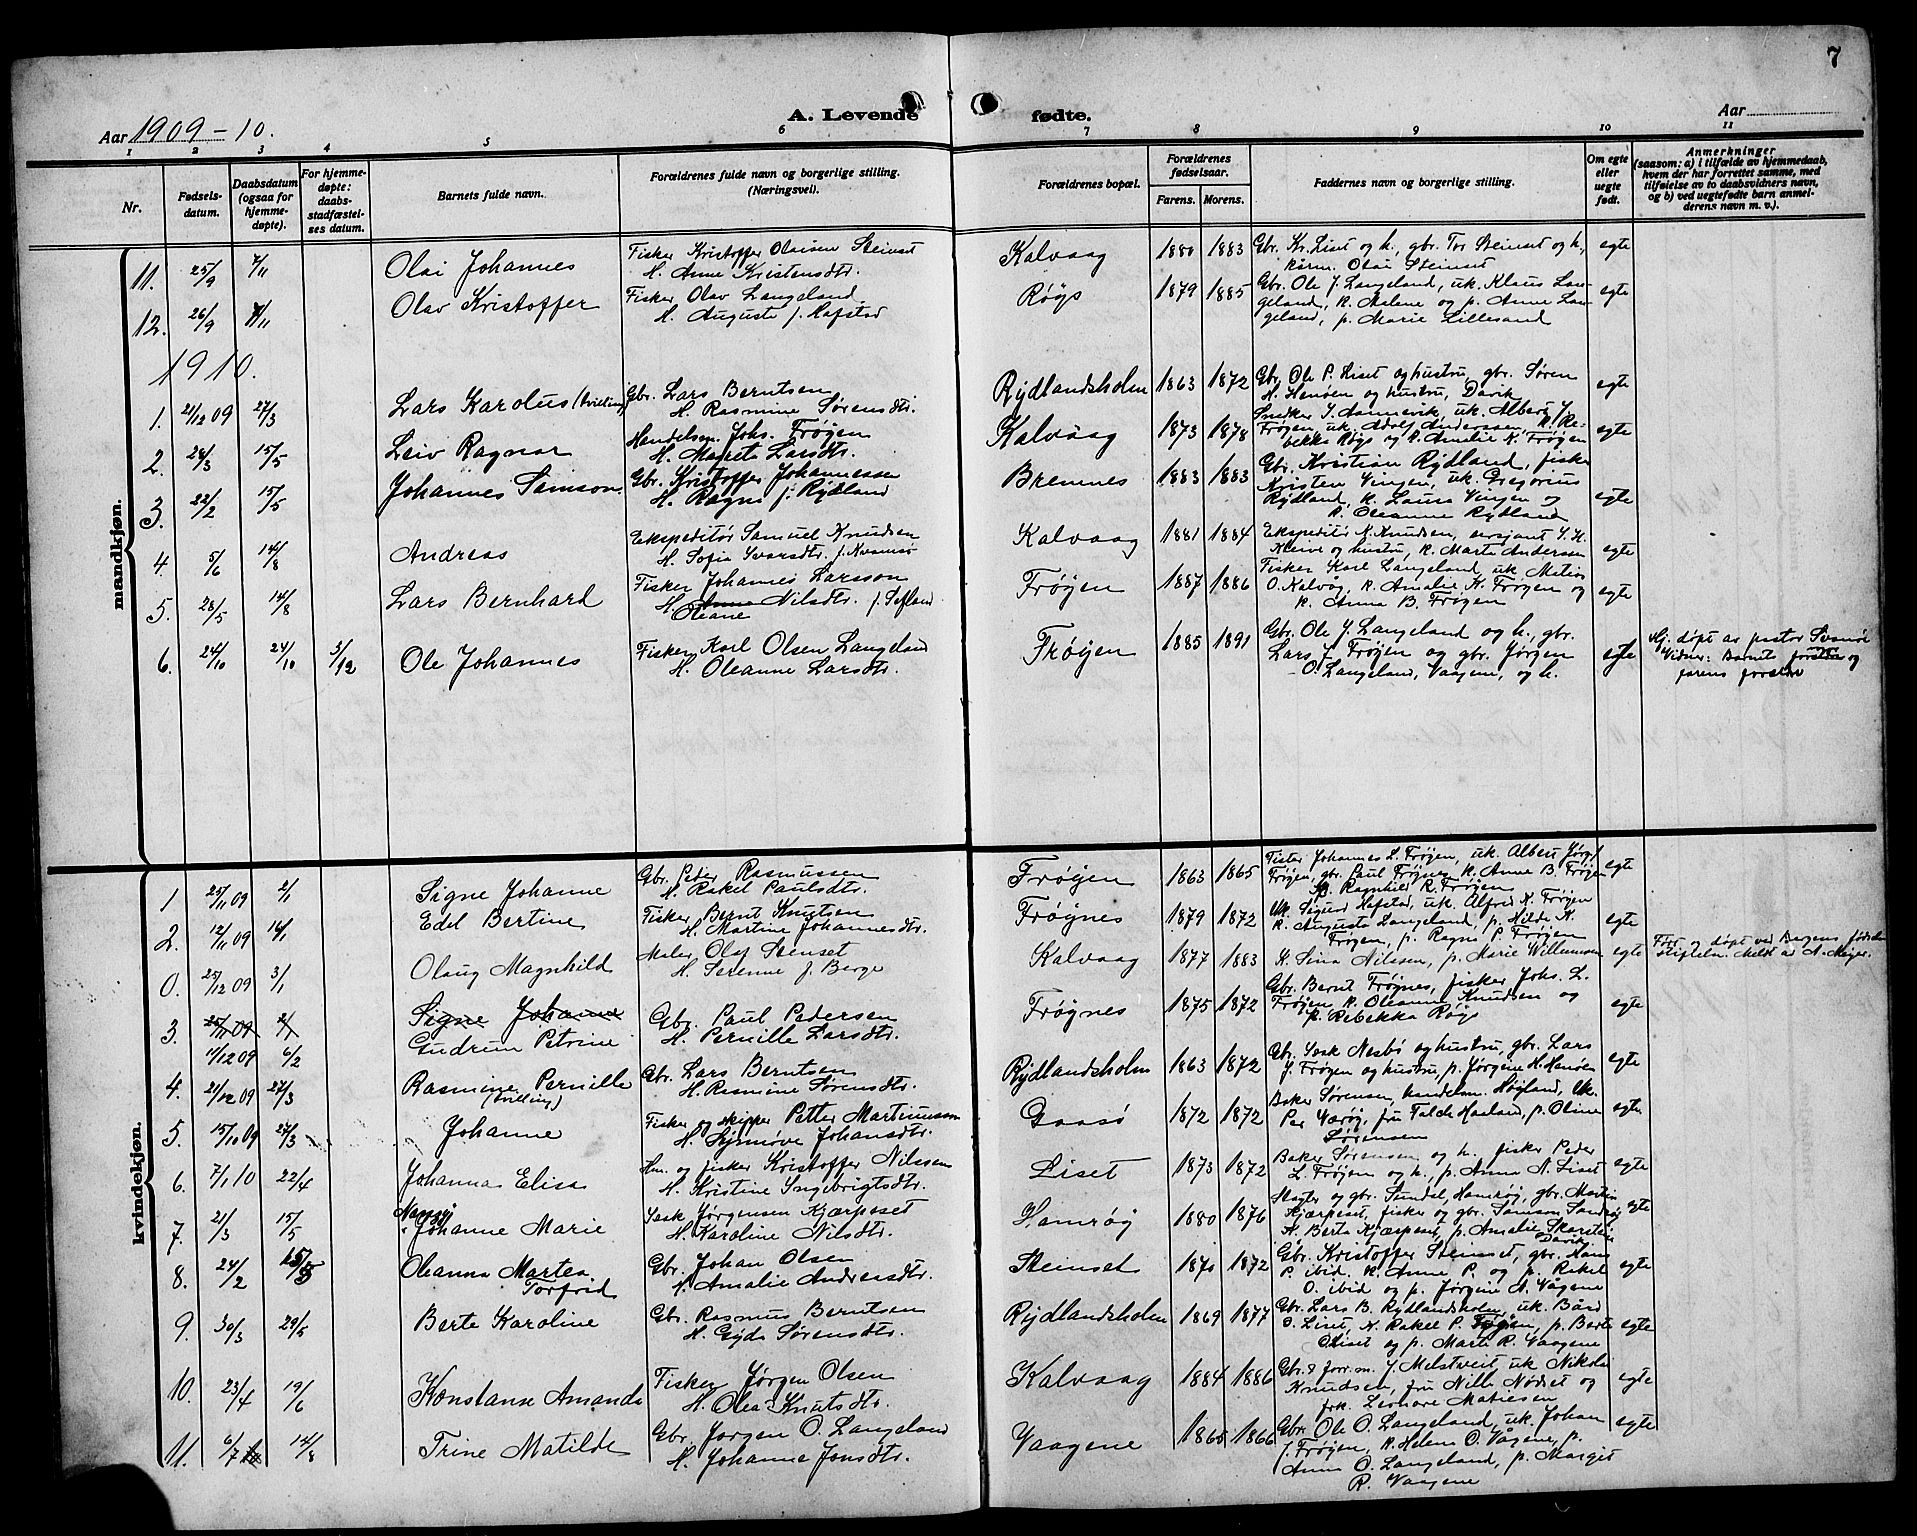 7
Aar 1909-10.
A. Levende fødte.
Aar
1 2 3 4 5 6 7 8 9 10 11
Nr.
Fødsels-
datum.
Daabsdatum
(ogsaa for
hjemme-
døpte).
For hjemme-
døpte:
daabs-
stadfæstel-
ses datum.
Barnets fulde navn.
Forældrenes fulde navn og borgerlige stilling.
(Næringsvei).
Forældrenes bopæl.
Forældrenes
fødselsaar.
Farens. Morens.
Faddernes navn og borgerlige stilling.
Om egte
eller
uegte
født.
Anmerkninger
(saasom: a) i tilfælde av hjemmedaab,
hvem der har forrettet samme, med
tilføielse av to daabsvidners navn,
og b) ved uegtefødte barn anmel-
derens navn m. v.).
mandkjøn.
11. 25/9 7/11 Olai Johannes
Fisker Kristoffer Olaisen Steinset
H. Anne Kristensdtr.
Kalvaag 1880 1883
Gbr. Kr. Liset og h, gbr. Tor Steinset og h,
kårm. Olai Steinset
egte
12. 26/9 7/11 Olav Kristoffer
Fisker Olav Langeland
H. Auguste f. Hafstad
Røys 1879 1885
Gbr. Ole J. Langeland, uk. Klaus Lan-
geland, k. Malene og p. Anne Lan-
geland, p. Marie Lillesand
egte
1910.
1. 21/12 09 27/3 Lars Karolus (tvilling)
Gbr. Lars Berntsen
H. Rasmine Sørensdtr.
Rydlandsholm 1863 1872
Gbr. Ole P. Liset og hustru, gbr. Søren
H. Henøen og hustru, Davik
egte
2. 28/3 15/5 Leiv Ragnar
Handelsm. Johs. Frøyen
H. Marete Larsdtr.
Kalvaag 1873 1878
Snedker J. Aannevik, uk. Albert J.
Frøyen, uk. Adolf Anderssen, k. Re-
bekka Røys og k. Amalie K. Frøyen
egte
3. 22/2 15/5 Johannes Samson
Gbr. Kristoffer Johannessen
H. Ragne f. Rydland
Bremnes 1883 1883
Gbr. Kristian Rydland, fisker
Kristen Vingen, uk. Gregorius
Rydland, k. Laura Vingen og
k. Oleanne Rydland
egte
4. 5/6 14/8 Andreas
Ekspeditør Samuel Knudsen
H. Sofie Ivarsdtr. f. Svanøe
Kalvaag 1881 1884
Ekspeditør N. Knudsen, sersjant S. H.
Kleive og hustru, k. Marte Andersen
egte
5. 28/5 14/8 Lars Bernhard
Fisker Johannes Larsson
H. Anna Nilsdtr. f. Sefland
Oleane
Frøyen 1887 1886
Fisker Karl Langeland, uk. Matias
O. Kalvåg, k. Amalie K. Frøyen og
k. Anna B. Frøyen
egte
6. 24/10 24/10 3/12 Ole Johannes
Fisker Karl Olsen Langeland
H. Oleanne Larsdtr.
Frøyen 1885 1891
Gbr. Ole J. Langeland og h., gbr.
Lars J. Frøyen og gbr. Jørgen
O. Langeland, Vaagene, og h.
egte
Hj. døpt av pastor Svanøe
Vidner: Barnets foreldre og
farens foreldre
kvindekjøn.
1 25/11 09 2/1 Signe Johanne
Gbr. Peder Rasmussen
H. Rakel Paulsdtr.
Frøyen 1863 1865
Fisker Johannes L. Frøyen, uk. Albert Jørg.
Frøyen, gbr. Paul Frøynes, k. Anne B. Frøyen
Ragnhild R. Frøyen
egte
2. 12/11 09 16/1 Edel Bertine
Fisker Bernt Knutsen
H. Martine Johannesdtr.
Frøynes 1879 1872
Uk. Sigurd Hafstad, uk. Alfred K. Frøyen
k. Augusta Langeland, p. Hilde K.
Frøyen, p. Ragne P. Frøyen
egte
0. 25/12 09 3/1 Olaug Magnhild
Maler Olaf Stenset
H. Serenne f. Berge
Kalvaag 1877 1883
K. Sina Nilssen, p. Marie Willumsen
egte
Født og døpt ved Bergens fødsels-
stifteln. Meldt av A. Meyer.
3 25/11 09 2/1 Signe Johanne
11/12 09 6/2 Gudrun Petrine
Gbr. Paul Pedersen
H. Pernille Larsdtr.
Frøynes 1875 1872
Gbr. Bernt Frøynes, fisker Johs. L.
Frøyen k. Oleanne Knudsen og
p. Rebekka Røys
egte
4. 21/12 09 27/3 Rasmine Pernille
(tvilling)
Gbr. Lars Berntsen
H. Rasmine Sørensdtr.
Rydlandsholm 1863 1872
Gbr. Isak Nesbø og hustru, gbr. Lars
J. Frøyen og hustru, p. Jørgine H. Henøen
egte
5. 15/10 09 27/3 Johanne
Fisker og skipper Petter Martinusson
H. Synnøve Johansdtr.
Gaasø 1872 1872
Baker Sørensen, handelsm. Høyland, uk.
Per Værøy, fru Falde Haaland, p. Oline
Sørensen
egte
6. 7/1 10 22/4 Johanna Elisa
Hm. og fisker Kristoffer Nilssen
H. Kristine Ingebrigtsdtr.
Liset 1873 1872
Baker Sørensen og h. fisker Peder
L. Frøyen og h., p. Anna N. Liset
egte
7. 21/3 15/5 Nanny
Johanne Marie
Isak Jørgensen Kjærpeset
H. Karoline Nilsdtr.
Hamrøy 1880 1876
Slagter og gbr. Sundel, Hamrøy, gbr. Martin
Kjærpeset, fisker og gbr. Samson Sandøy
H. Berta Kjærpeset, p. Amalie Skarstein
Davik
egte
8. 24/2 15/5 Oleanna Martea
Torfrid
Gbr. Johan Olsen
H. Amalie Andreasdtr.
Steinset 1870 1872
Gbr. Kristoffer Steinset, gbr. Hans
P. ibid. k. Anne P. og p. Rakel
O. ibid og p. Jørgine N. Vågene
egte
9. 30/3 29/5 Berte Karoline
Gbr. Rasmus Berntsen
H. Gyda Sørensdtr.
Rydlandsholm 1869 1877
Gbr. Lars B. Rydlandsholm, uk. Bård
O. Liset, k. Rakel P. Frøyen, p. Berte
O Liset og p. Marte R. Vaagene
egte
10. 23/4 19/6 Konstanse Amanda
Fisker Jørgen Olsen
H. Olea Knutsdtr.
Kalvaag 1884 1886
Gbr. & forr.m. J. Melstveit uk Nikolai
Knudsen, fru Nille Nødset og
frk. Leonore Matiesen
egte
11. 6/7 14/8 Trine Matilde
Gbr. Jørgen O. Langeland
H. Johanne Jonsdtr.
Vaagene 1865 1866
Gbr. Ole O. Langeland, uk. Johan
J. Frøyen, k. Helene O. Vågene, p.
Anna O. Langeland, p. Margit
R. Vaagene
egte